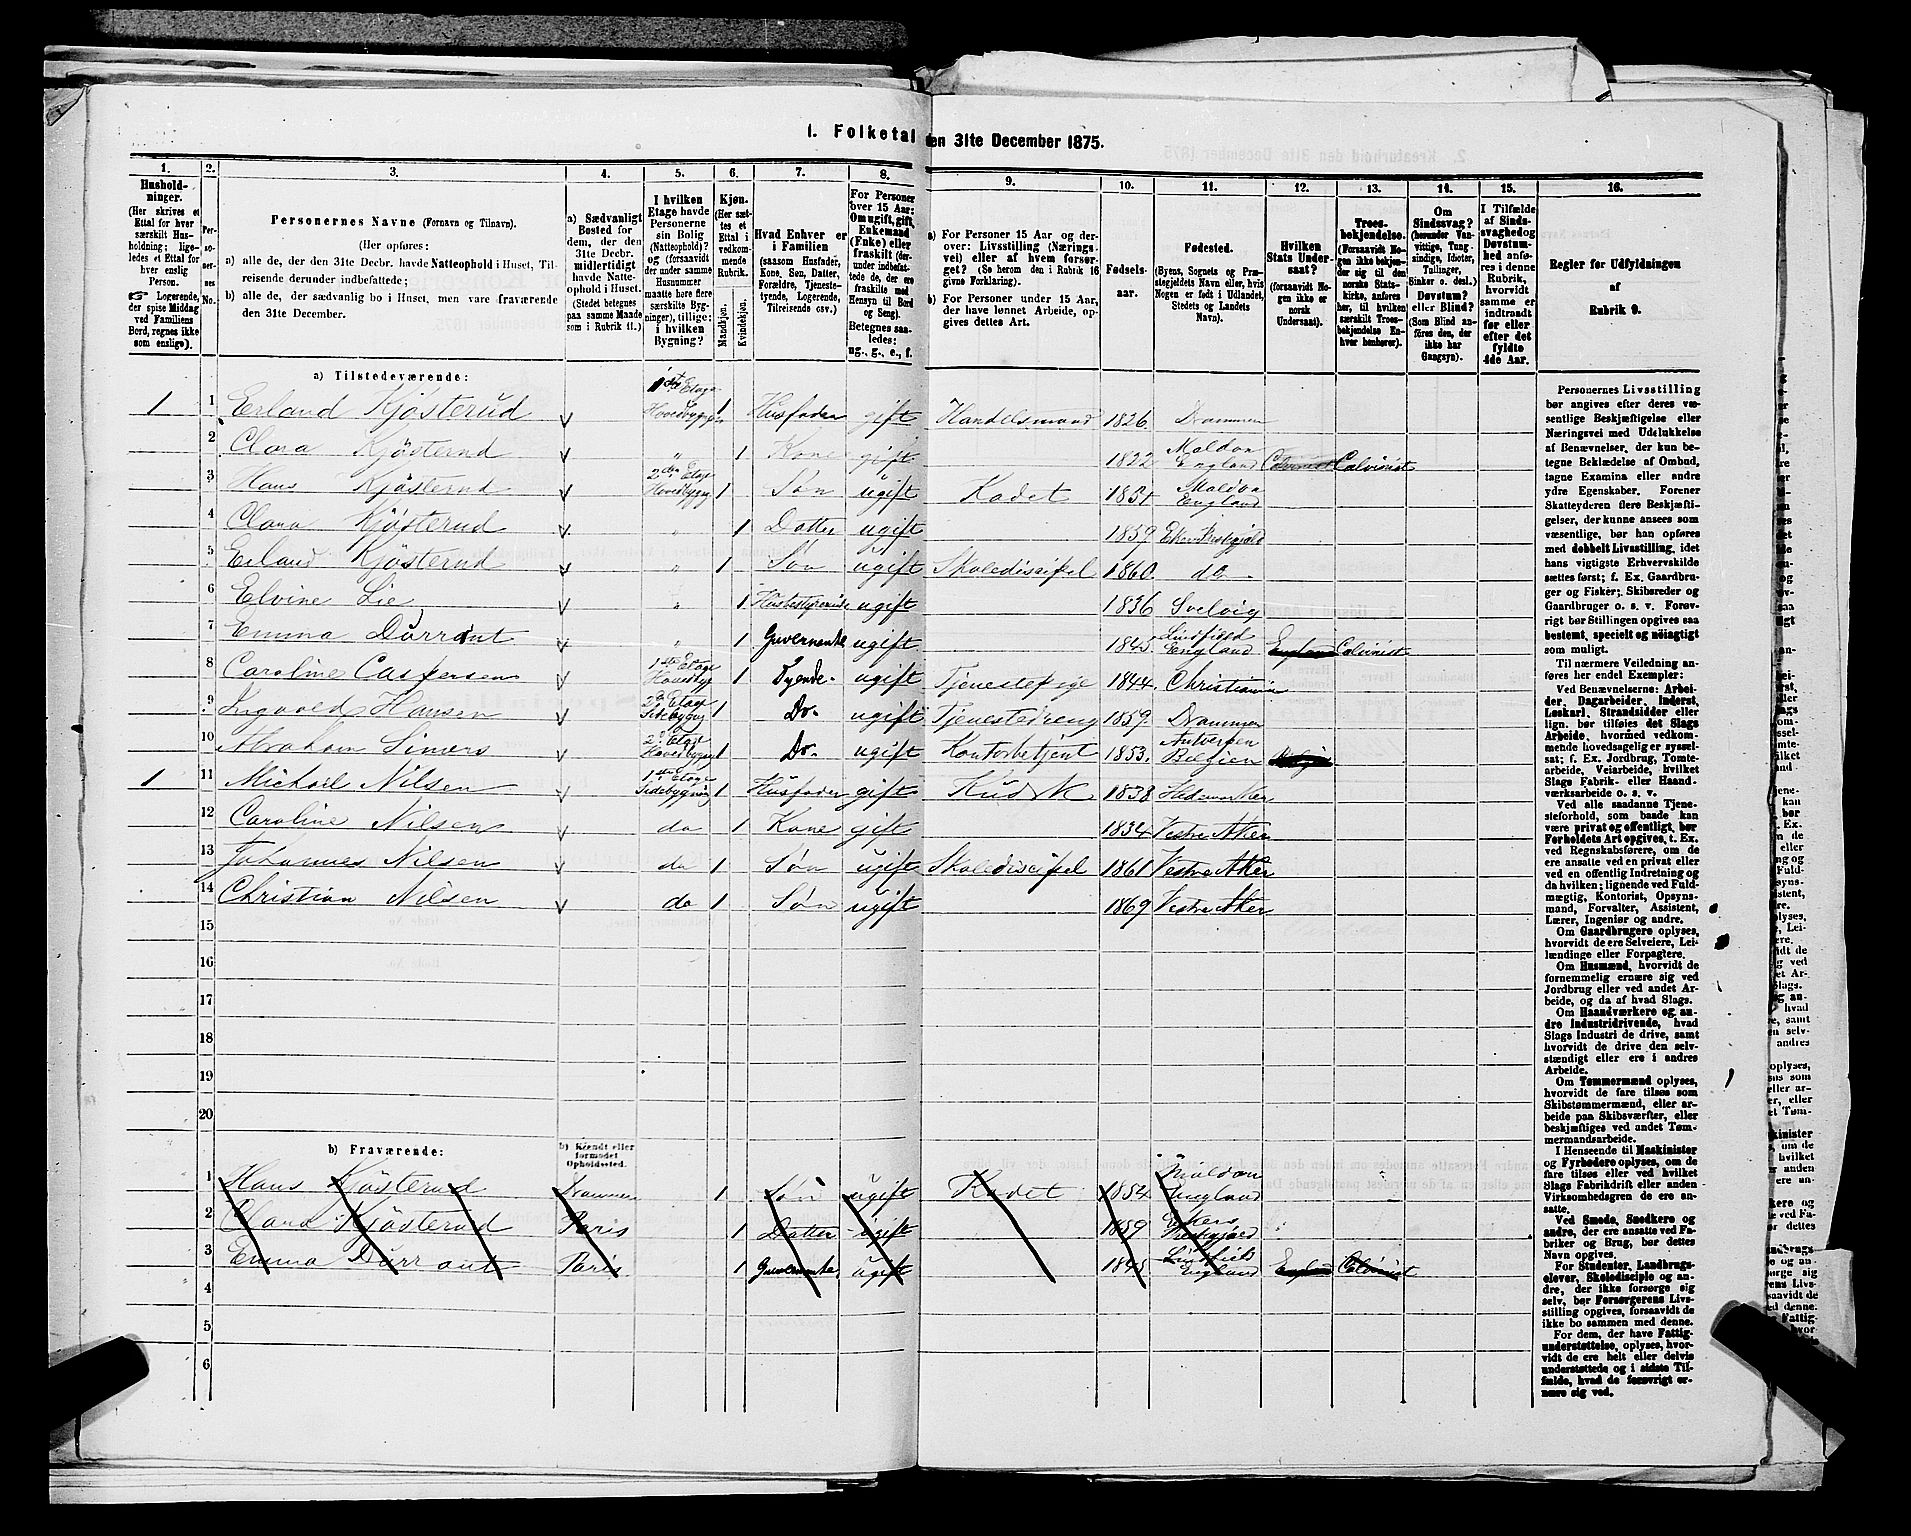 1. Folketal den 31te December 1875.
1. 2. 3. 4. 5. 6. 7. 8. 9. 10. 11. 12. 13. 14. 15. 16.
Hushold-
ninger.
(Her skrives et
Ettal for hver
særskilt Hus-
holdning; lige-
ledes et Ettal
for hver enslig
Person.
☞ Logerende,
der spise Middag
ved Familiens
Bord, regnes ikke
som enslige).
Per-
so-
ner-
nes
No.
Personernes Navne (Fornavn og Tilnavn).
(Her opføres:
a) alle de, der den 31te Decbr. havde Natteophold i Huset, Til-
reisende derunder indbefattede;
b) alle de, der sædvanlig bo i Huset, men vare fraværende
den 31te December.
a) Sædvanligt
Bosted for
dem, der den
31te Decbr.
midlertidigt
havde Natte-
ophold i Huset.
(Stedet betegnes
paa samme Maade
som i Rubrik 11.)
I hvilken
Etage havde
Personerne
sin Bolig
(Natteophold)?
og (forsaavidt
der under samme
Husnummer
maatte høre flere
særskilte Byg-
ninger), tillige:
i hvilken
Bygning?
Kjøn.
(Her sæt-
tes et
Ettal i
vedkom-
mende
Rubrik.
Mandkjøn.
Kvindekjøn.
Hvad Enhver er
i Familien
(saasom Husfader,
Kone, Søn, Datter,
Forældre, Tjeneste-
tyende, Logerende,
Tilreisende osv.)
For Personer
over 15 Aar:
Om ugift, gift,
Enkemand
(Enke) eller
fraskilt (der-
under indbefat-
tede, de ere
fraskilte med
Hensyn til Bord
og Seng).
Betegnes saa-
ledes:
ug., g., e., f.
a) For Personer 15 Aar og der-
over: Livsstilling (Nærings-
vei) eller af hvem forsør-
get? (Se herom den i Rubrik 16
givne Forklaring).
b) For Personer under 15 Aar,
der have lønnet Arbeide, op-
gives dettes Art.
Fødsels-
aar.
Fødested.
(Byens, Sognets og Præ-
stegjeldets Navn eller, hvis
Nogen er født i Udlandet,
Stedets og Landets
Navn).
Hvilken
Stats Under-
saat?
(forsaavidt No-
gen ikke er
norsk
Undersaat).
Troes-
bekjendelse.
(Forsaavidt No-
gen ikke bekjen-
der sig til den
norske Stats-
kirke, anføres
her, til hvilken
særskilt Troes-
bekjendelse En-
hver henhører).
Om
Sindssvag?
(herunder Van-
vittige, Tung-
sindige, Idioter,
Tullinger,
Sinker o. desl.)
Døvstum?
eller Blind?
(Som Blind an-
føres den, der
ikke har
Gangsyn).
I Tilfælde
af Sinds-
svaghed og
Døvstum-
hed anfø-
res i denne
Rubrik,
hvorvidt
samme er
indtraadt
før eller
efter det
fyldte
4de Aar.
Regler for Udfyldningen
af
Rubrik 9.
a) Tilstedeværende:
1 1 Erland Kjøsterud v 1ste Etage Hovedbygg. 1 Husfader gift Handelsmand 1826. Drammen
2 Clara Kjøsterud v " 1 Kone gift 1822 Maldon England Calvinist
3 Hans Kjøsterud v 2den Etage Hovedbygg 1 Søn ugift Kadet 1854 Maldon England
4 Clara Kjøsterud v " 1 Datter ugift 1859 Eker Prstgjæld
5 Erland Kjøsterud v " 1 Søn ugift Skolediscipel 1860. do
6 Elvine Lie v " 1 Husbestyrerinde ugift 1836 Svelvig
7 Emma Durrant v " 1 Guvernante ugift 1845 Lindfield England England Calvinist
8 Caroline Caspersen v 1ste Etage Hovedbyg 1 Tyende. ugift Tjenestepige 1844. Christiania
9 Ingvald Hansen v 2d Etage Sidebygng 1 Do. ugift Tjenestedreng 1859. Drammen
10 Abraham Simers v 2d Etage Hovedbygng 1 Do. ugift Kontorbetjent 1853. Antverpen Belgien
1 11 Michail Nilsen v 1ste Etage Sidebygning 1 Husfader gift Kudsk 1838 Hedemarken
12 Caroline Nilsen v do 1 Kone gift 1834 Vestre Aker
13 Johannes Nilsen v do 1 Søn ugift Skolediscipel 1861 Vestre Aker
14 Christian Nilsen v do 1 Søn ugift 1869 Vestre Aker
15
16
17
18
19
20
b) Fraværende: b) Kjendt eller
formodet
Opholdssted.
1 Hans Kjøsterud Drammen 1 Søn ugift Kadet 1854 Maldon England
2 Clara Kjøsterud Paris 1 Datter ugift 1859 Ekers Prestegjæld
3 Emma Durrant Paris. 1 Guvernante. ugift 1845 Lindfield England England Calvinist
4
5
6
Personernes Livsstilling
bør angives efter deres væ-
sentlige Beskjæftigelse eller
Næringsvei med Udelukkelse
af Benævnelser, der kun be-
tegne Beklædelse af Ombud,
tagne Examina eller andre
ydre Egenskaber. Forener
Skatteyderen flere Beskjæfti-
gelser, der kunne ansees som
væsentlige, bør han opføres
med dobbelt Livsstilling, idet
hans vigtigste Erhvervskilde
sættes først; f. Ex. Gaardbru-
ger og Fisker; Skibsreder og
Gaardbruger o. s. v. Forøv-
rigt bør Stillingen opgives saa
bestemt, specielt og nøiagtigt
som muligt.
Til nærmere Veiledning an-
føres her endel Exempler:
Ved Benævnelserne: Arbei-
der, Dagarbeider, Inderst,
Løskarl, Strandsidder eller
lign. bør tilføies det Slags
Arbeide, hvormed vedkom-
mende hovedsagelig er syssel-
sat; f. Ex. Jordbrug, Tomte-
arbeide, Veiarbeide, hvilket
Slags Fabrik- eller Haand-
værksarbeide o. s. v.
Ved alle saadanne Tjene-
steforhold, som baade kan
være privat og offentligt, bør
Forholdets Art opgives, t. Ex.
ved Regnskabsførere, om de
ere ansatte ved en privat eller
ved en offentlig Indretning og
da hvilken; lignende ved Fuld-
mægtig, Kontorist, Opsyns-
mand, Forvalter, Assistent,
Lærer, Ingeniør og andre.
Om Gaardbrugere oplyses,
hvorvidt de ere Selveiere, Lei-
lændinge eller Forpagtere.
Om Husmænd, hvorvidt de
fornemmelig ernære sig ved
Jordbrug eller ved andet Ar-
beide, og da af hvad Slags.
Om Haandværkere og an-
dre Industridrivende, hvad
Slags Industri de drive, samt
hvorvidt de drive den selv-
stændigt eller ere i andres
Arbeide.
Om Tømmermænd oplyses,
hvorvidt de fare tilsøs som
Skibstømmermænd, eller ar-
beide paa Skibsværfter, eller
beskjæftiges ved andet Tøm-
mermandsarbeide.
I Henseende til Maskinister
og Fyrbødere oplyses, om de
fare tilsøs eller ved hvilket
Slags Fabrikdrift eller anden
Virksomhedsgren de ere an-
satte.
Ved Smede, Snedkere og
andre, der ere ansatte ved Fa-
briker og Brug, bør dettes
Navn opgives.
For Studenter, Landbrugs-
elever, Skoledisciple og an-
dre, der ikke forsørge sig
selv, bør Forsørgerens Livs-
stilling opgives, forsaavidt de
ikke bo sammen med denne.
For dem, der have Fattig-
understøttelse, oplyses, hvor-
vidt de ere helt eller delvis
understøttede og i sidste Til-
fælde, hvad de forøvrigt er-
nære sig ved.